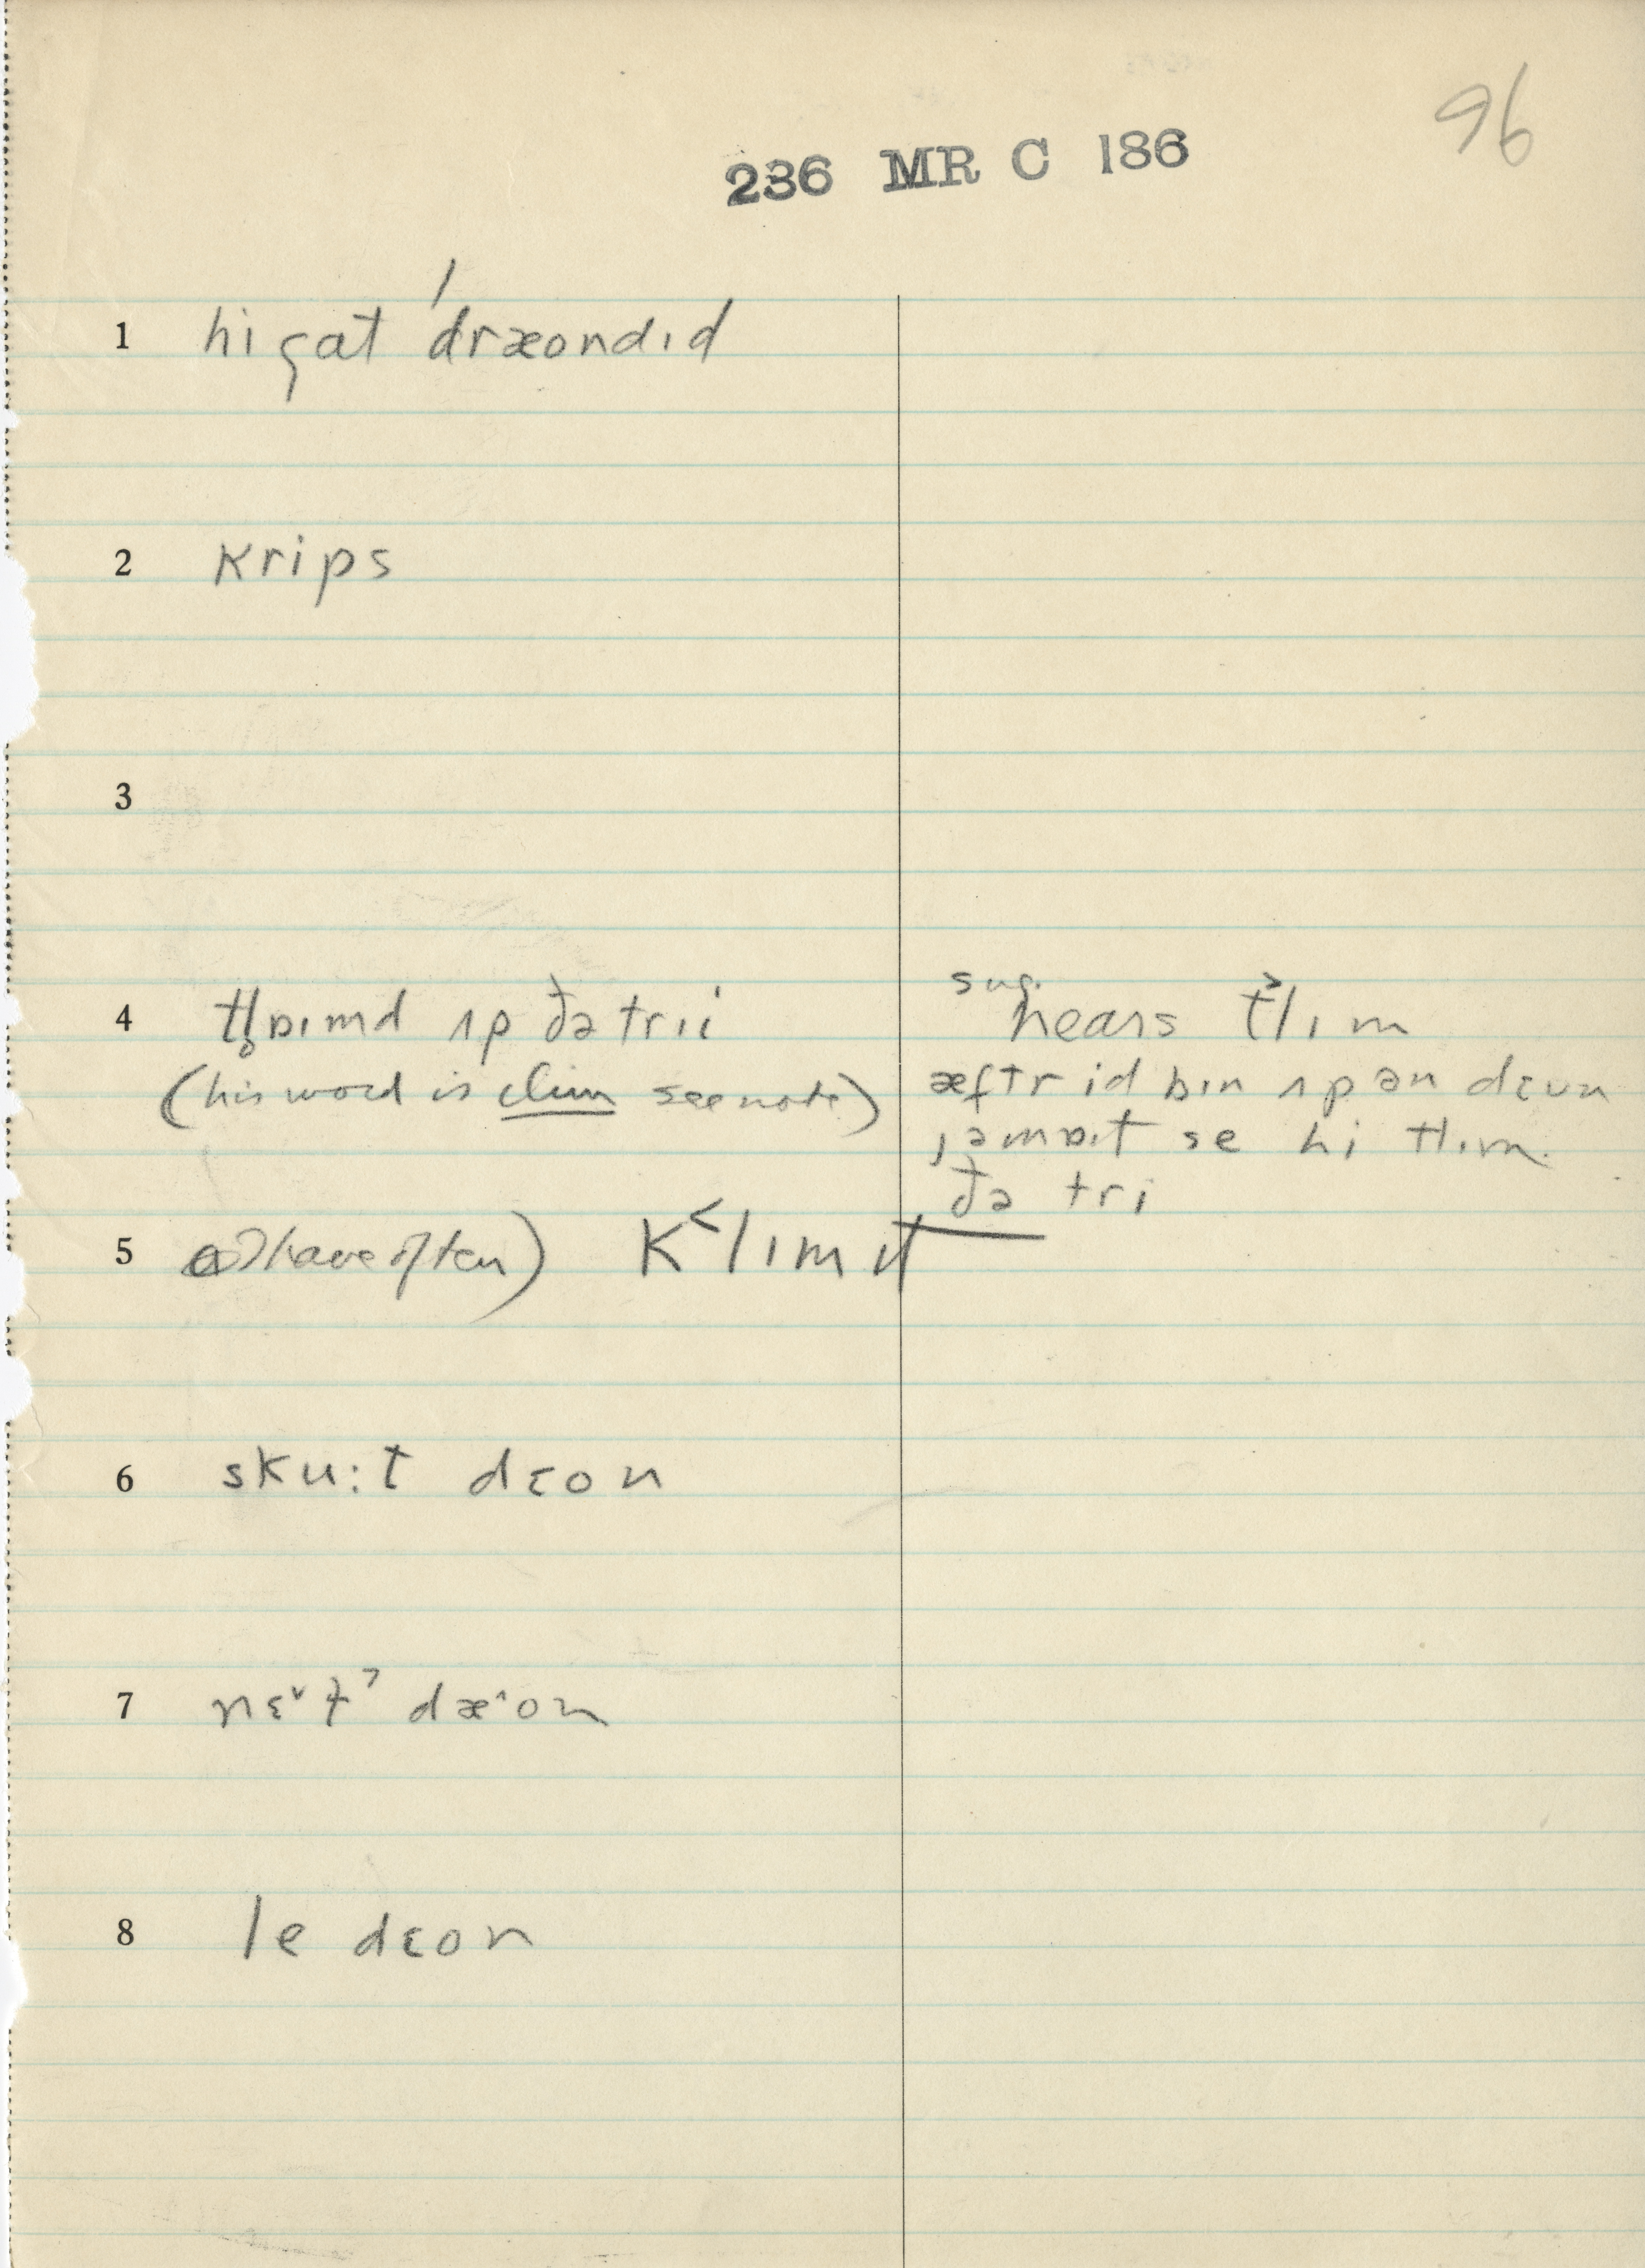 96
236 MR C 186
1 hi gat ˈdræondɪd
2 krips
3
4 tl̥ɒɪmd ʌp ðə trɪi
(his word is clim see note)
sug.
hears t˃lɪm
æftr id bɪn ʌp ən dɛun
ˌəmɒɪt se hi tlɪm
ðə tri
5 have often) k˂lɪm ɪt
6 sku:t dɛon
7 nɛ˅t˺ dæ˄on
8 le dɛon